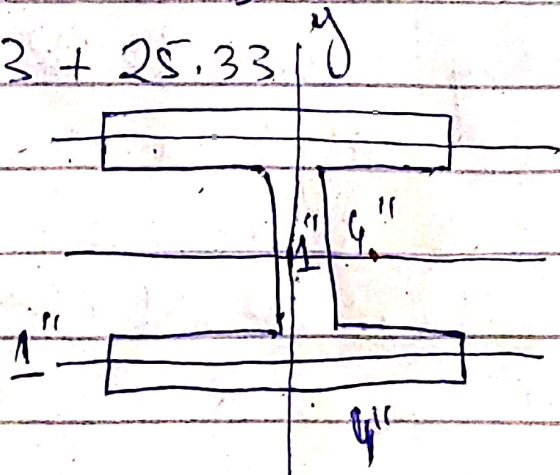 3 + 25.33
y
1" 4"
1"
4"